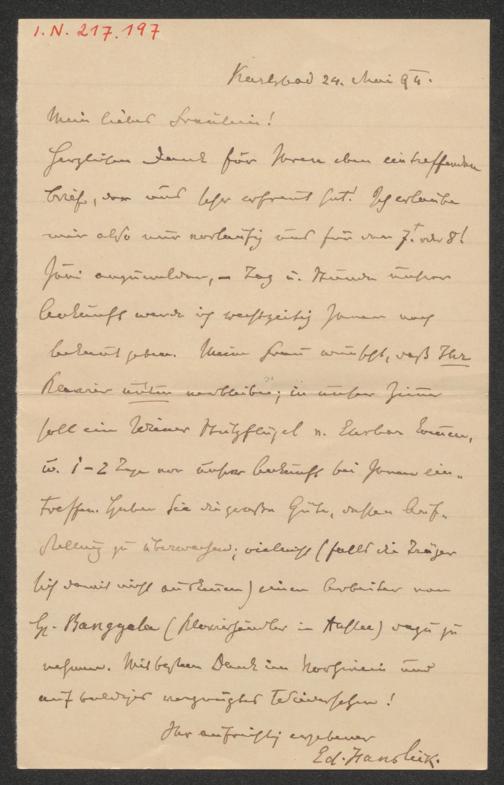 I.N. 217.197
Karlsbad 24. Mai 94.
Mein liebes Fräulein!
Herzlichen Dank für Ihren eben eintreffenden
Brief, der uns sehr erfreut hat! Ich erlaube
mir also nur vorläufig uns für den 7. oder 8!
Juni anzumelden, – Tag u. Stunde unserer
Ankunft werde ich rechtzeitig Ihnen noch
bekannt geben. Meine Frau wünscht, daß Ihr
Klavier unten verbleibe; in unser Zimmer
soll ein Wiener Stutzflügel v. Ehrbar kommen,
u. 1–2 Tage vor unserer Ankunft bei Ihnen ein-
treffen. Haben Sie die große Güte, dessen Auf-
stellung zu überwachen; vielleicht (falls die Träger
sich damit nicht auskennen) einen Arbeiter von
H. (Klavierhändler in Aussee) dazu zu
nehmen. Mit bestem Dank im Vorhinein und
auf baldiges vergnügtes Wiedersehen!
Ihr aufrichtig ergebener
Ed. Hanslick.